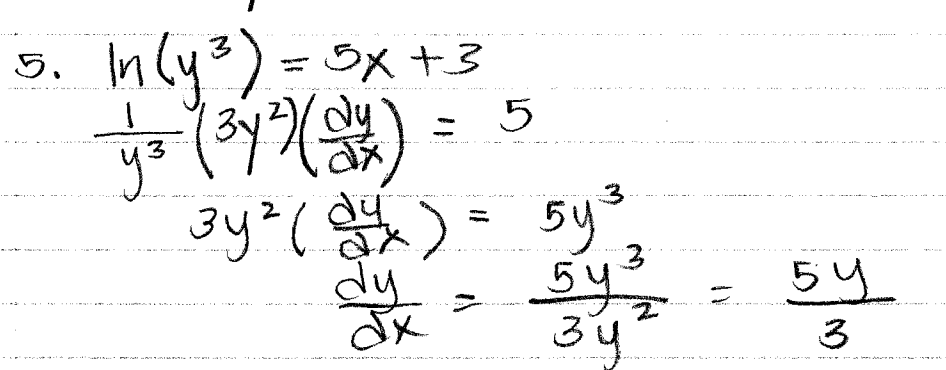 5. ln(y³) = 5x + 3
1/y³ (3y²)(dy/dx) = 5
3y² (dy/dx) = 5y³
dy/dx = 5y³/3y² = 5y/3